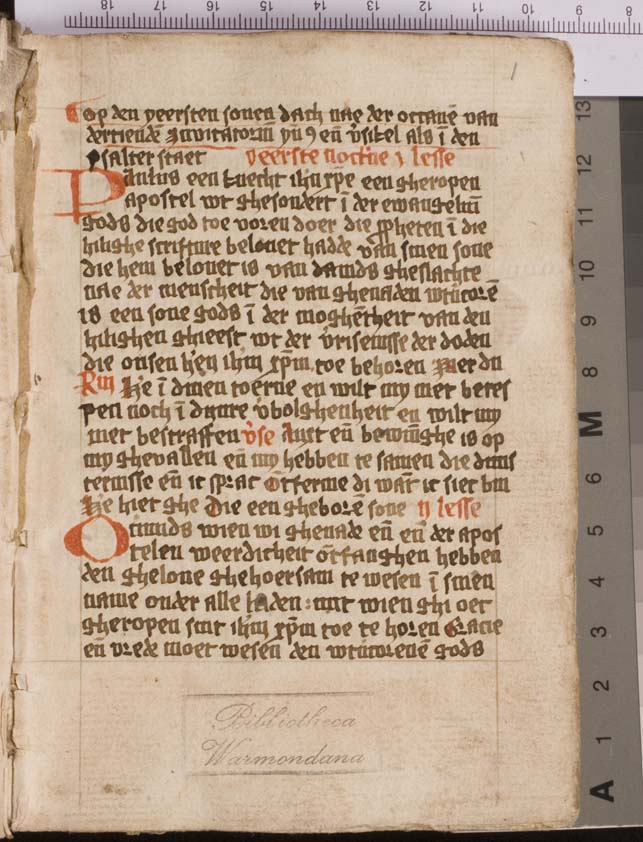 1
op den yeersten sonen dach nae der octauē van
dertiendē Inuitatoriū yn̄ ꝯ en̄ v̄sikel als ī den
psalter staet yeerste noctne j lesse
Paulus een knecht ihū xp̄e een gheropen
apostel wt ghesondert ī der ewangeliū
gods die god toe voren doer die ꝓpheten ī die
hilighe scrifture belouet hadde van sinen sone
die hem belouet is van dauids gheslachte
nae der menscheit die van ghenaden wtūcorē
is een sone gods ī der moghētheit van den
hilighen ghieest wt der v̄risenisse der doden
die onsen h'en ih'm xp̄m toe behoren Mer du
Rm̄ He ī dinen toerne en wilt my niet beres
pen noch ī dynre v̄bolghenheit en wilt my
niet bestraffen v̄se Anxt en̄ bewin̄ghe is op
my ghevallen en̄ my hebben te samen die duus
ternisse en̄ ic sprac Ōtferme di wāt ic siec bin
He hiet ghe Die een gheborē sone ij lesse
Ouermids wien wi ghenade en̄ en̄ der apos
telen weerdicheit ōtfanghen hebben
den ghelone ghehoersam te wesen ī sinen
name onder alle laden : mit wien ghi oec
gheropen sint ih'm xp̄m toe te horen Gracie
en̄ vrede moet wesen den wtūcorenē gods
Bibliotheca
Warmondana
18 17 16 15 14 13 12 11 10 9 8
13
12
11
10
9
8
M
6
5
4
3
2
1
A